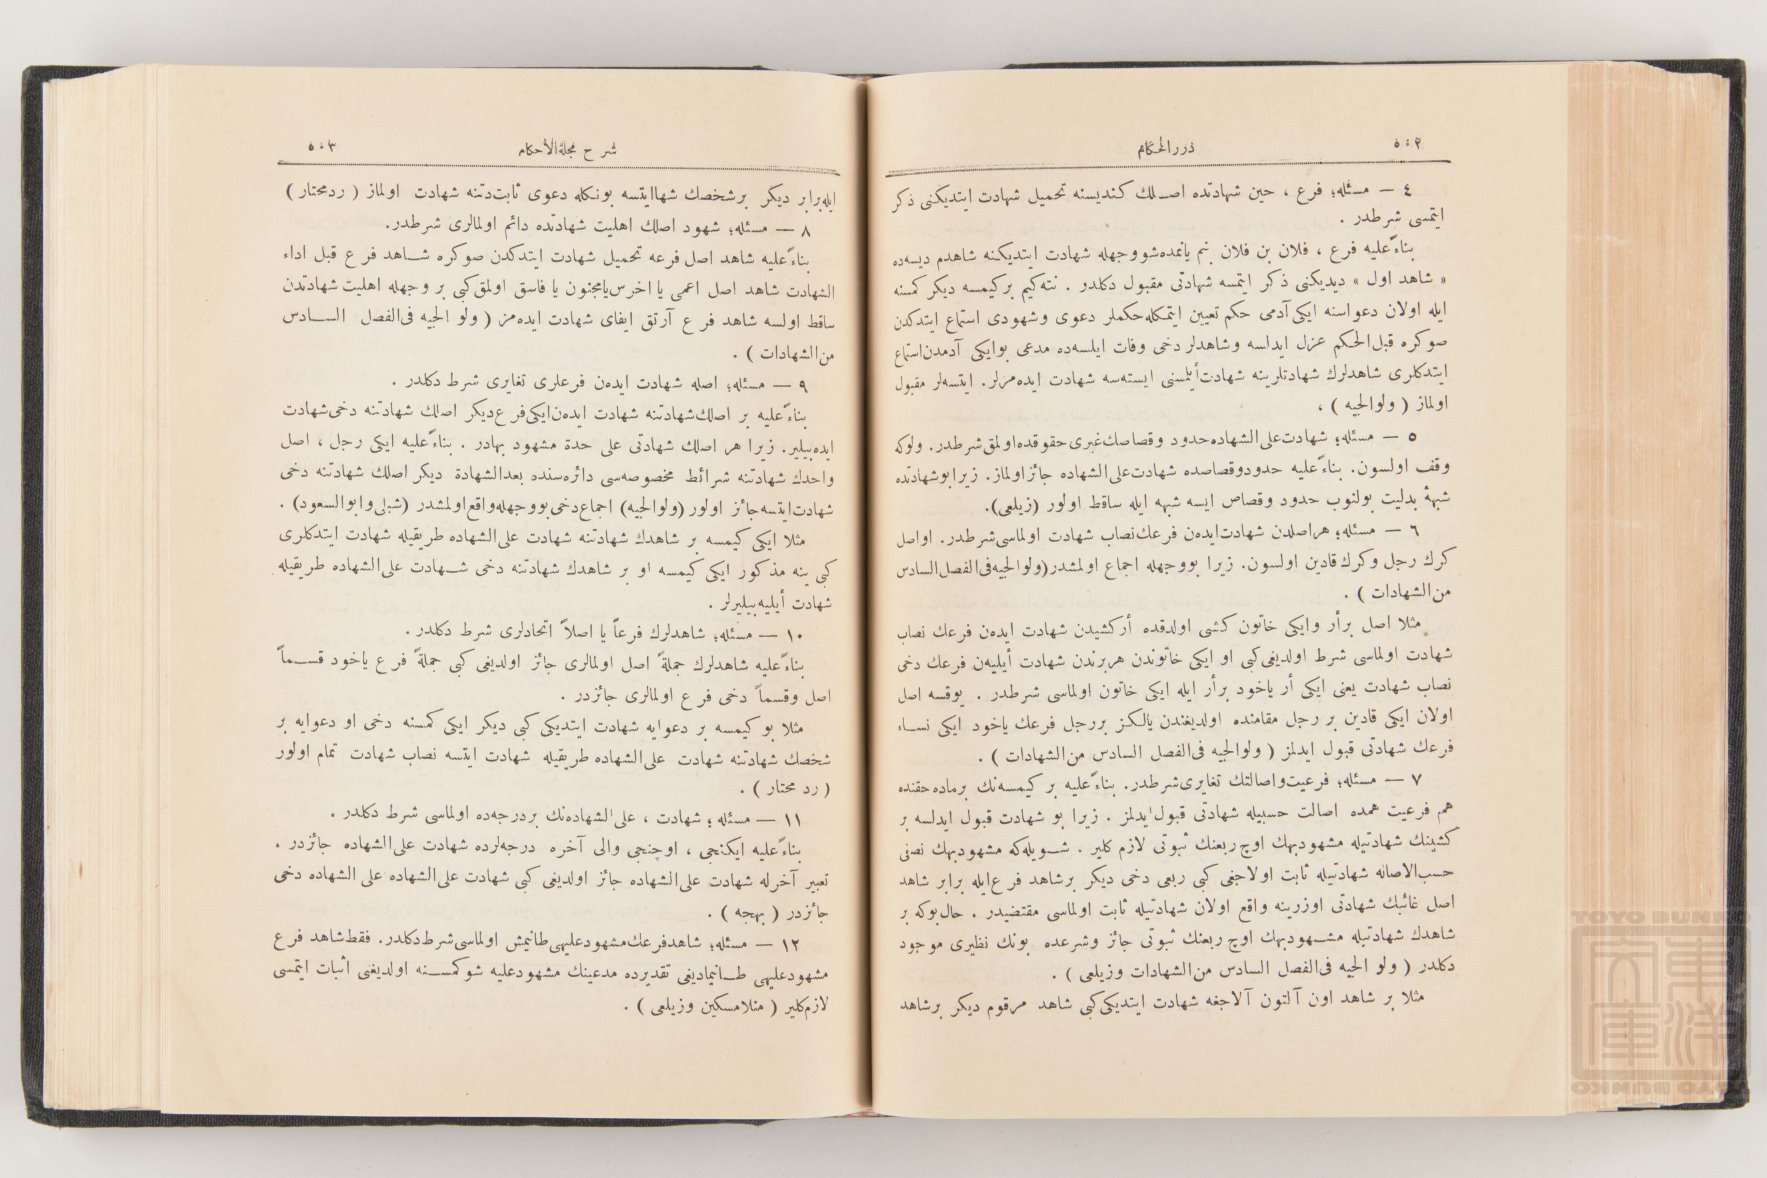 ٥٠٢
دررالحكام
٤ — مسئله؛ فرع ، حين شهادتده اصلك كنديسنه تحميل شهادت ايتديكنى ذكر
ايتمسى شرطدر .
بناءً عليه فرع ، فلان بن فلان بنم ياتمده شو وجهله شهادت ايتديكنه شاهدم ديسه ده
« شاهد اول » ديديكنى ذكر ايتمسه شهادتى مقبول دكلدر . نته كيم بركيمسه ديكر كمسنه
ايله اولان دعواسنه ايكى آدمى حكم تعيين ايتمكله حكملر دعوى وشهودى استماع ايتدكدن
صوكره قبل الحكم عزل ايدلسه وشاهدلر دخى وفات ايلسه ده مدعى بوايكى آدمدن استماع
ايتدكلرى شاهدلرك شهادتلرينه شهادت أيلمسنى ايسته سه شهادت ايده مزلر. ايتسه لر مقبول
اولماز ( ولوالجيه ) ،
٥ — مسئله؛ شهادت على الشهاده حدود وقصاصك غيرى حقوقده اولمق شرطدر. ولوكه
وقف اولسون. بناءً عليه حدود وقصاصده شهادت على الشهاده جائز اولماز. زيرا بو شهادتده
شبهۀ بدليت بولنوب حدود وقصاص ايسه شبهه ايله ساقط اولور (زيلعى).
٦ — مسئله؛ هراصلدن شهادت ايدەن فرعك نصاب شهادت اولماسى شرطدر. او اصل
كرك رجل وكرك قادين اولسون. زيرا بووجهله اجماع اولمشدر (ولوالجيه فى الفصل السادس
من الشهادات ) .
مثلا اصل برأر وايكى خاتون كشى اولدقده أركشيدن شهادت ايدەن فرعك نصاب
شهادت اولماسى شرط اولديغى كبى او ايكى خاتوندن هربرندن شهادت أيليەن فرعك دخى
نصاب شهادت يعنى ايكى أر ياخود برأر ايله ايكى خاتون اولماسى شرطدر . يوقسه اصل
اولان ايكى قادين بر رجل مقامنده اولديغندن يالكز بررجل فرعك ياخود ايكى نساء
فرعك شهادتى قبول ايدلمز ( ولوالجيه فى الفصل السادس من الشهادات ) .
٧ — مسئله؛ فرعيت واصالتك تغايرى شرطدر. بناءً عليه بر كيمسه نك برماده حقنده
هم فرعيت همده اصالت حسبيله شهادتى قبول ايدلمز . زيرا بو شهادت قبول ايدلسه بر
كشينك شهادتيله مشهودبهك اوچ ربعنك ثبوتى لازم كلير . شويله كه مشهودبهك نصفى
حسب الاصاله شهادتيله ثابت اولاجغى كبى ربعى دخى ديكر برشاهد فرع ايله برابر شاهد
اصل غائبك شهادتى اوزرينه واقع اولان شهادتيله ثابت اولماسى مقتضيدر . حال بوكه بر
شاهدك شهادتيله مشهودبهك اوچ ربعنك ثبوتى جائز وشرعده بونك نظيرى موجود
دكلدر ( ولو الجيه فى الفصل السادس من الشهادات وزيلعى ) .
مثلا بر شاهد اون آلتون آلاجغه شهادت ايتديكى كبى شاهد مرقوم ديكر برشاهد
٥٠٣
شرح مجلة الأحكام
ايله برابر ديكر برشخصك شهاايتسه بونكله دعوى ثابت دتنه شهادت اولماز ( ردمحتار )
٨ — مسئله؛ شهود اصلك اهليت شهادتده دائم اولمالرى شرطدر.
بناءً عليه شاهد اصل فرعه تحميل شهادت ايتدكدن صوكره شاهد فرع قبل اداء
الشهادت شاهد اصل اعمى يا اخرس يا مجنون يا فاسق اولمق كبى بر وجهله اهليت شهادتدن
ساقط اولسه شاهد فرع آرتق ايفاى شهادت ايده مز ( ولو الجيه فى الفصل السادس
من الشهادات ) .
٩ — مسئله؛ اصله شهادت ايدەن فرعلرى تغايرى شرط دكلدر .
بناءً عليه بر اصلك شهادتنه شهادت ايدەن ايكى فرع ديكر اصلك شهادتنه دخى شهادت
ايده بيلير. زيرا هر اصلك شهادتى على حدة مشهود بهادر . بناءً عليه ايكى رجل ، اصل
واحدك شهادتنه شرائط مخصوصه سى دائره سنده بعدالشهادة ديكر اصلك شهادتنه دخى
شهادت ايتسه جائز اولور (ولوالجيه) اجماع دخى بووجهله واقع اولمشدر (شبلى وابوالسعود) .
مثلا ايكى كيمسه بر شاهدك شهادتنه شهادت على الشهاده طريقيله شهادت ايتدكلرى
كبى ينه مذكور ايكى كيمسه او بر شاهدك شهادتنه دخى شهادت على الشهاده طريقيله
شهادت أيليه بيليرلر .
١٠ — مسئله؛ شاهدلرك فرعاً يا اصلاً اتحادلرى شرط دكلدر .
بناءً عليه شاهدلرك جملةً اصل اولمالرى جائز اولديغى كبى جملةً فرع ياخود قسماً
اصل وقسماً دخى فرع اولمالرى جائزدر .
مثلا بو كيمسه بر دعوايه شهادت ايتديكى كبى ديكر ايكى كمسنه دخى او دعوايه بر
شخصك شهادتنه شهادت على الشهاده طريقيله شهادت ايتسه نصاب شهادت تمام اولور
( رد محتار ) .
١١ — مسئله ؛ شهادت ، على الشهاده نك بردرجه ده اولماسى شرط دكلدر .
بناءً عليه ايكنجى ، اوچنجى والى آخره درجه لرده شهادت على الشهاده جائزدر .
تعبير آخرله شهادت على الشهاده جائز اولديغى كبى شهادت على الشهاده على الشهاده دخى
جائزدر ( بهجه ) .
١٢ — مسئله؛ شاهدفرعك مشهودعليهى طانيمش اولماسى شرط دكلدر. فقط شاهد فرع
مشهودعليهى طانيماديغى تقديرده مدعينك مشهودعليه شو كمسنه اولديغنى اثبات ايتمسى
لازمكلير ( منلامسكين وزيلعى ) .
TOYO BUNKO
東洋
文庫
TOYO BUNKO